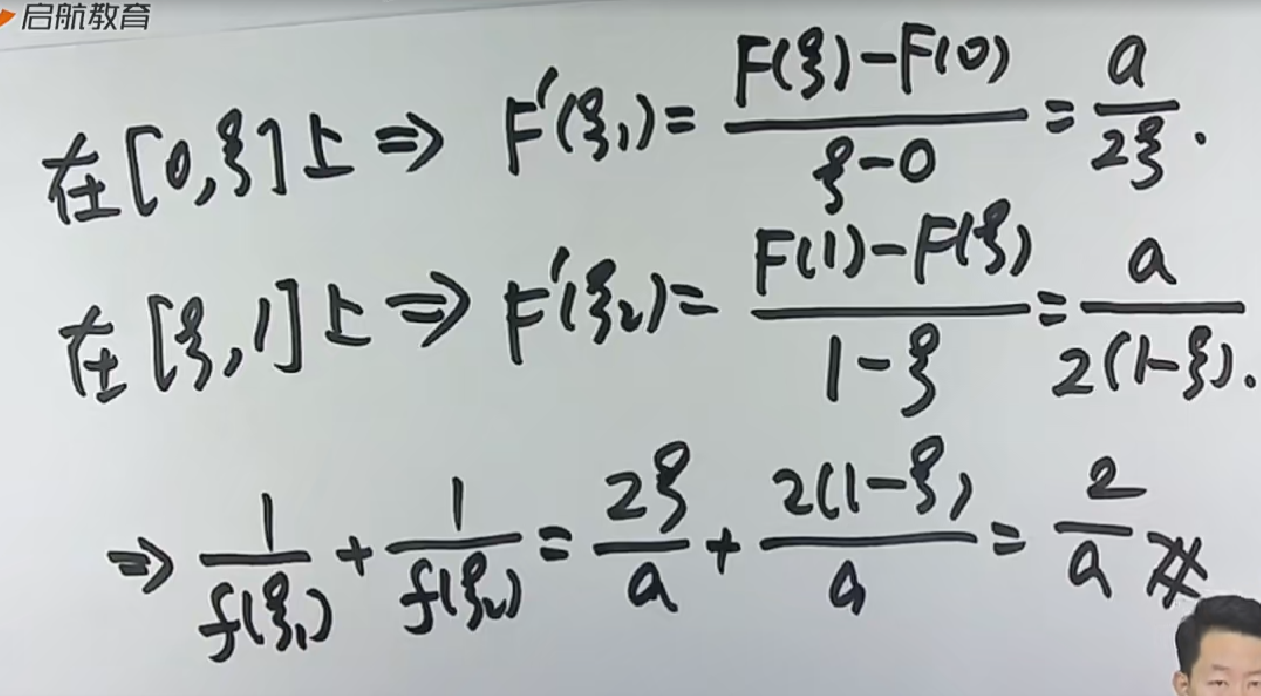 启航教育
在[0,ξ]上 ⇒ F'(ξ₁) = (F(ξ)-F(0))/(ξ-0) = a/(2ξ).
在[ξ,1]上 ⇒ F'(ξ₂) = (F(1)-F(ξ))/(1-ξ) = a/(2(1-ξ)).
⇒ 1/f(ξ₁) + 1/f(ξ₂) = 2ξ/a + 2(1-ξ)/a = 2/a ※